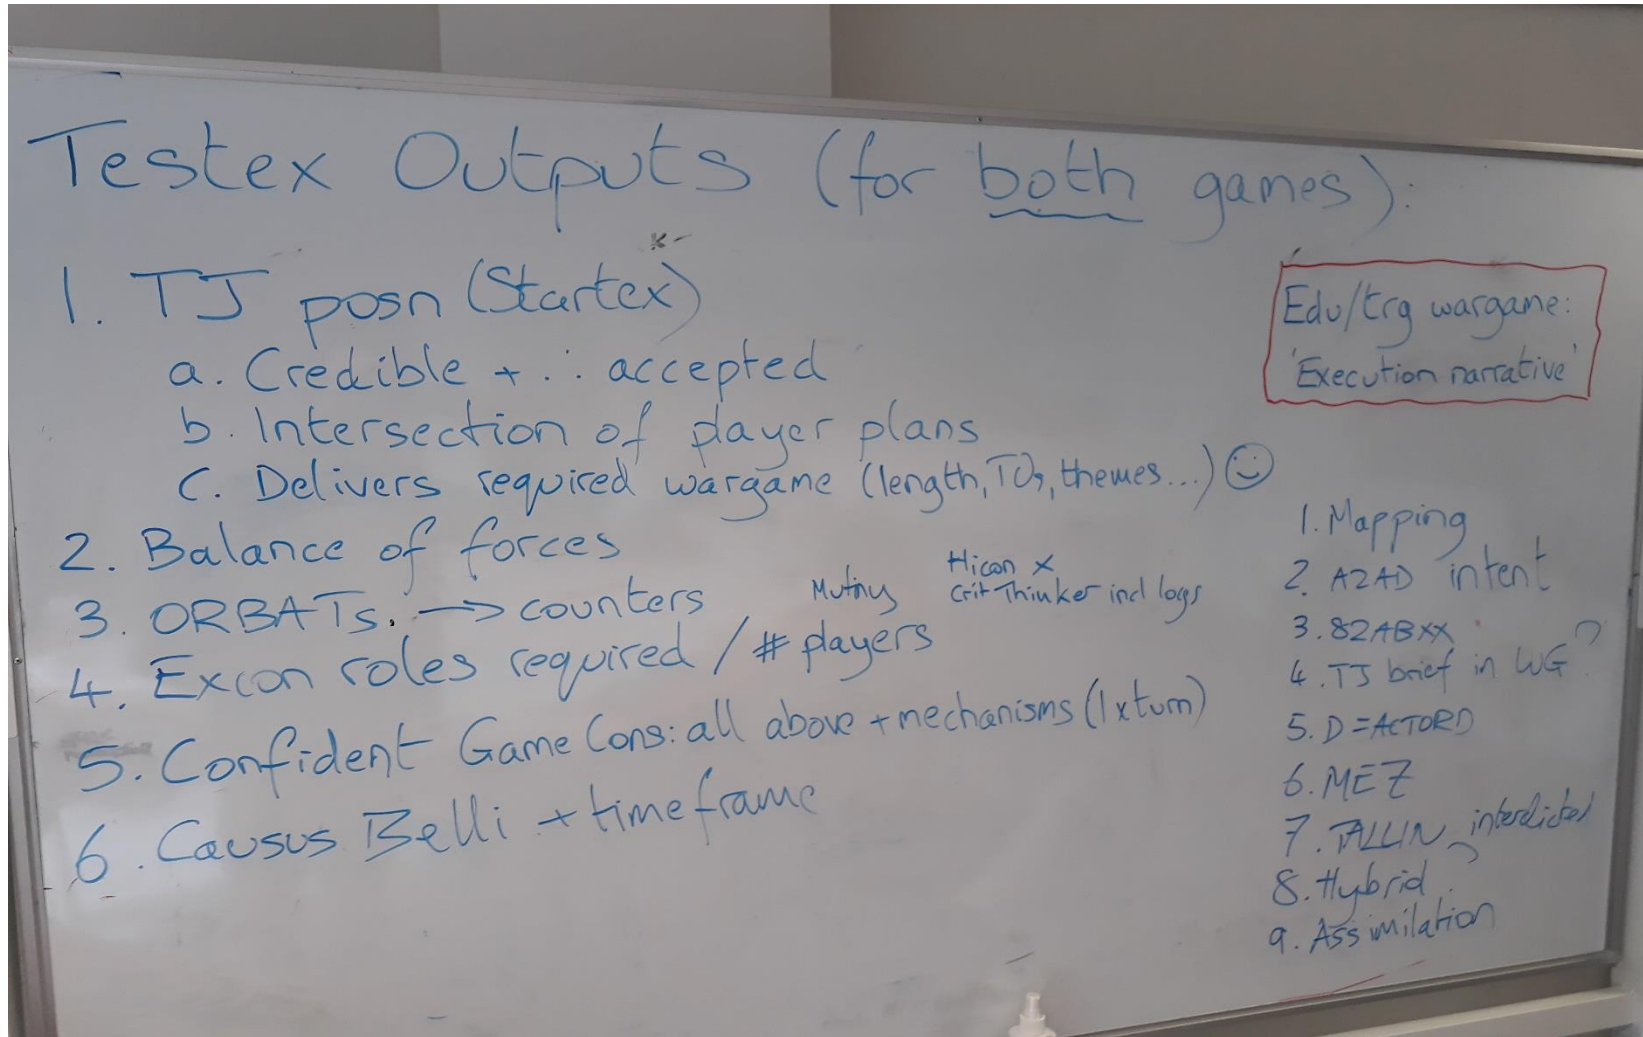 Testex Outputs (for both games):
1. TJ posn (Startex)
a. Credible + ∴ accepted
b. Intersection of player plans
c. Delivers required wargame (length, TOs, themes...) ☺
2. Balance of forces
3. ORBATs. → counters
4. Excon roles required / # players
Mutiny
Hicon x
Crit Thinker incl logs
5. Confident Game Cons: all above + mechanisms (1 x turn)
6. Causus Belli + timeframe
Edu/trg wargame:
'Execution narrative'
1. Mapping
2. A2AD intent
3. 82ABXX
4. TJ brief in WG?
5. D = ACTORD
6. MEZ
7. TALLIN interdicted
8. Hybrid
9. Assimilation